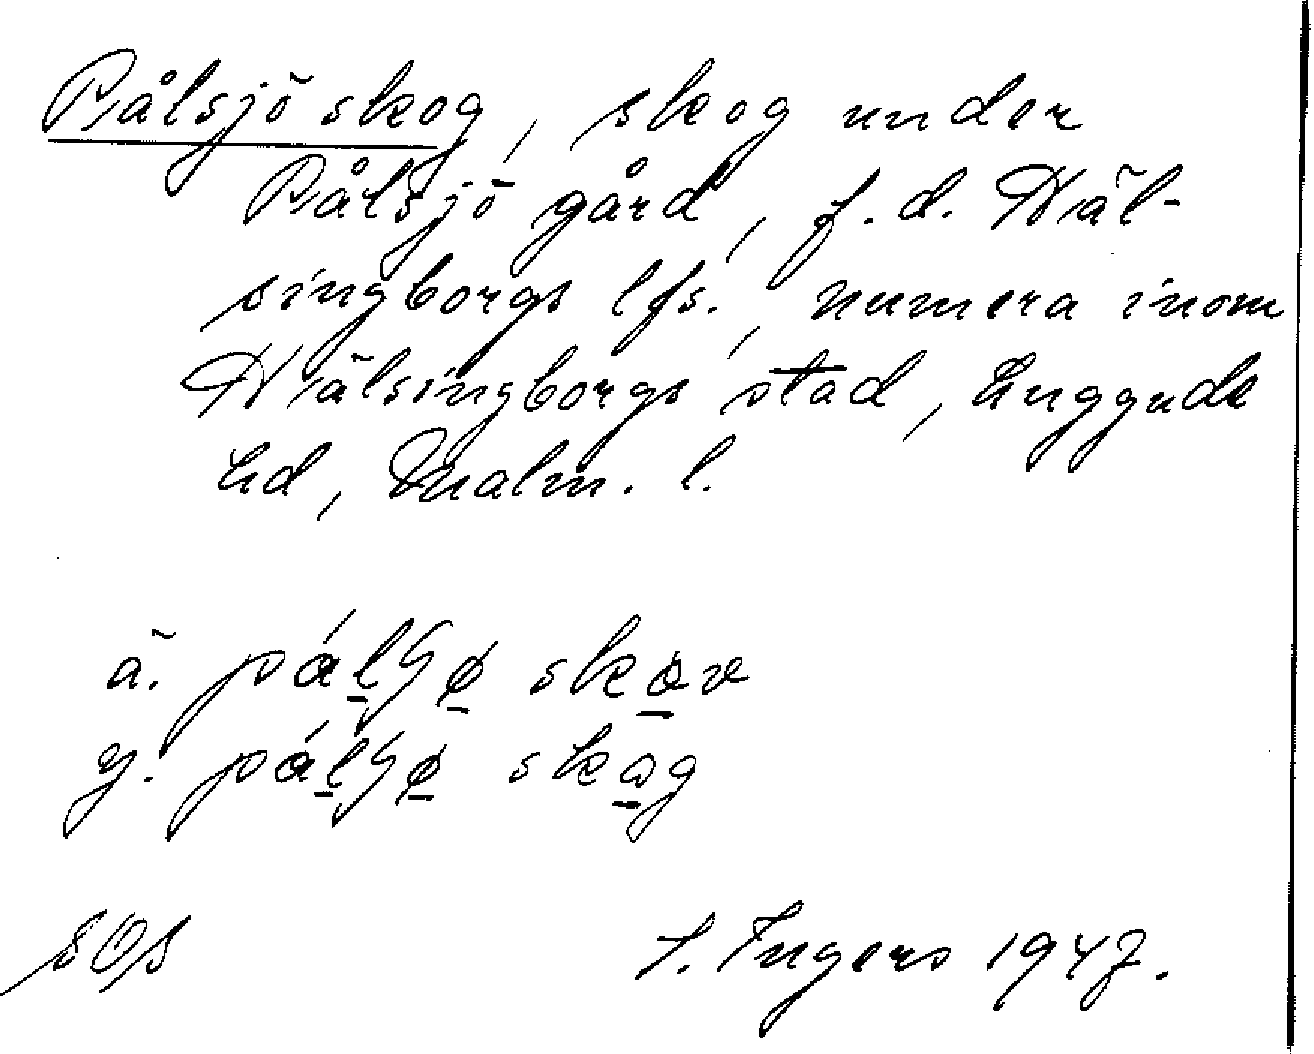 Pålsjö skog, skog under
Pålsjö gård, f.d. Häl-
singborgs lfs., numera inom
Hälsingborgs stad, Luggude
hd, Malm. l.
ä. pál̲ʃø̲ sko̲v
y. pál̲ʃø̲ sko̲g
SOS
I. Ingers 1947.